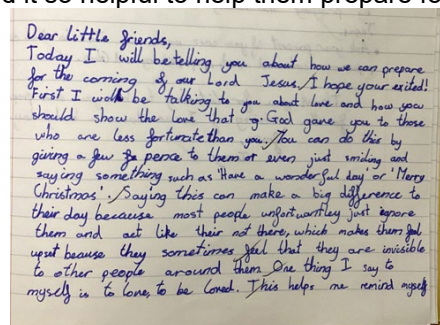 it so helpful to help them prepare
Dear little friends,
Today I will be telling you about how we can prepare
for the coming of our Lord Jesus. I hope your exited!
First I will be talking to you about love and how you
should show the love that God gave you to those
who are less fortunate than you. You can do this by
giving a few pence to them or even just smiling and
saying something such as 'Have a wonderful day' or 'Merry
Christmas'. Saying this can make a big difference to
their day because most people unfortuantley just ignore
them and act like their not there, which makes them feel
upset beause they sometimes feel that they are invisible
to other people around them. One thing I say to
myself is to love, to be loved. This helps me remind myself